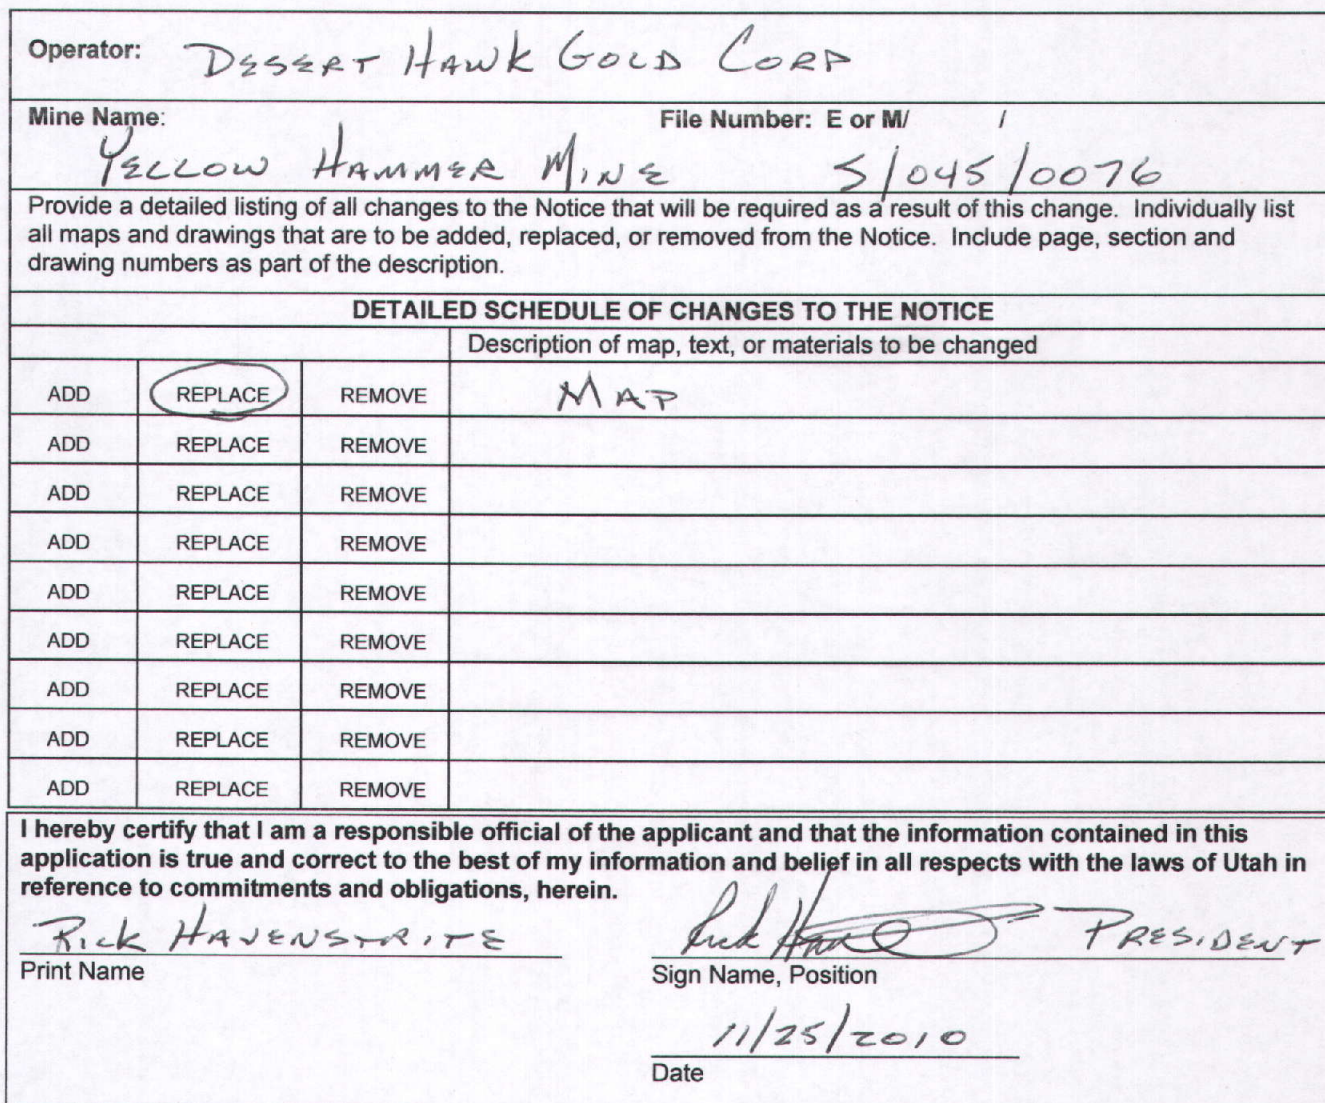 Operator: DESERT HAWK GOLD CORP
Mine Name: File Number: E or M/ /
YELLOW HAMMER MINE S/045/0076
Provide a detailed listing of all changes to the Notice that will be required as a result of this change. Individually list
all maps and drawings that are to be added, replaced, or removed from the Notice. Include page, section and
drawing numbers as part of the description.
DETAILED SCHEDULE OF CHANGES TO THE NOTICE
Description of map, text, or materials to be changed
ADD REPLACE REMOVE MAP
ADD REPLACE REMOVE
ADD REPLACE REMOVE
ADD REPLACE REMOVE
ADD REPLACE REMOVE
ADD REPLACE REMOVE
ADD REPLACE REMOVE
ADD REPLACE REMOVE
ADD REPLACE REMOVE
I hereby certify that I am a responsible official of the applicant and that the information contained in this
application is true and correct to the best of my information and belief in all respects with the laws of Utah in
reference to commitments and obligations, herein.
RICK HAVENSTRITE Rick PRESIDENT
Print Name Sign Name, Position
11/25/2010
Date